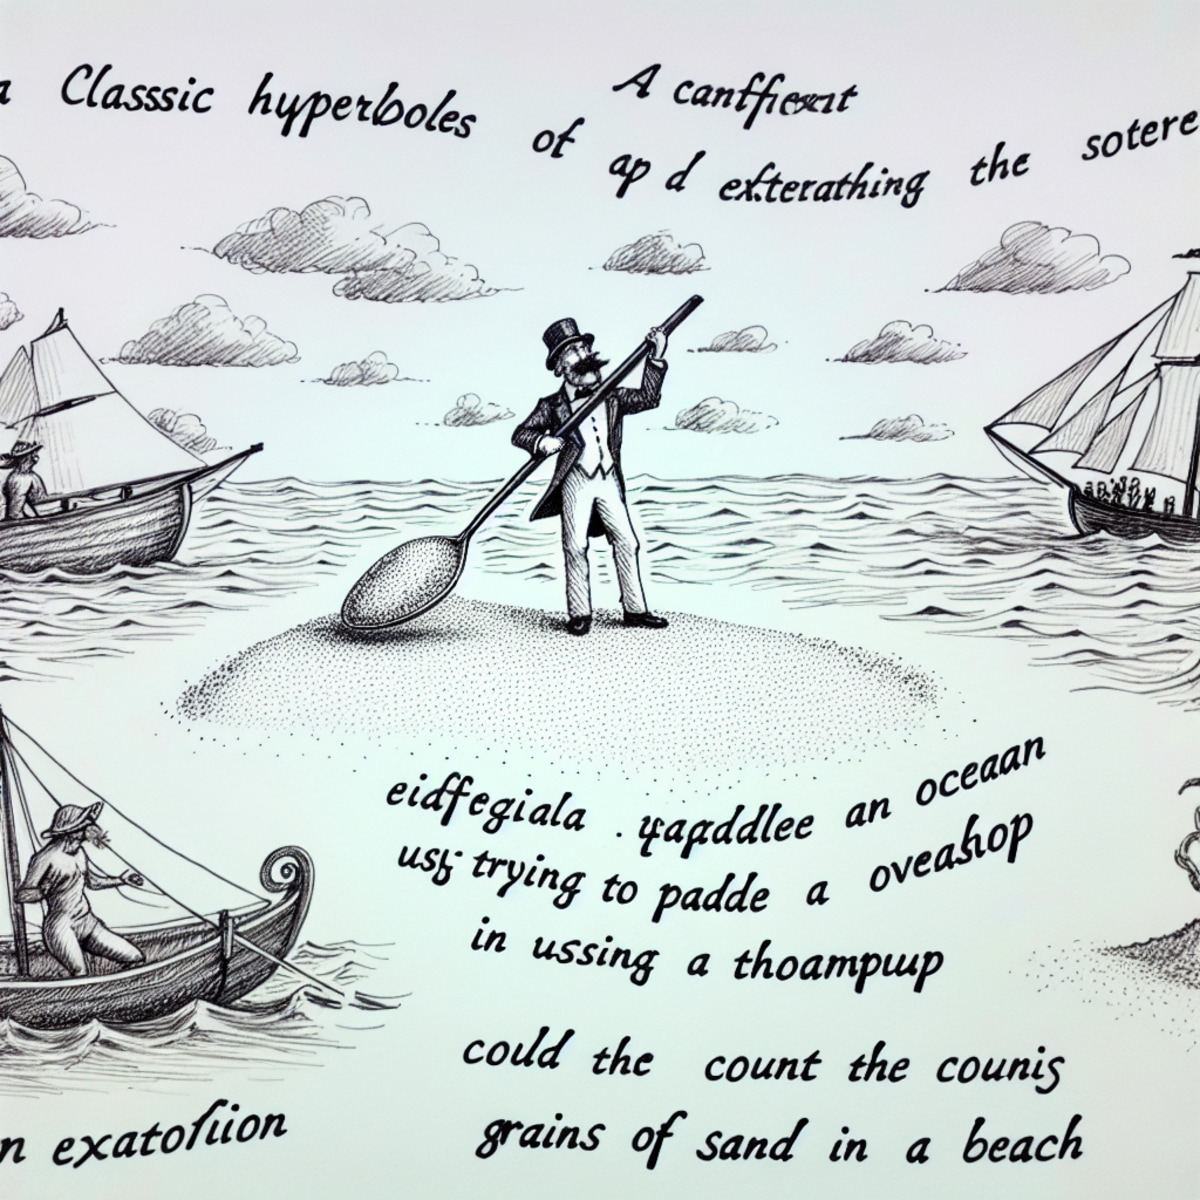 a Classsic hyperboles of
A canffiexnt
ap d exterathing the sotere
eidfegiala . yapddlee an oceaan
usy trying to padde a oveashop
in ussing a thoampup
could the count the counis
grains of sand in a beach
n exatofiion